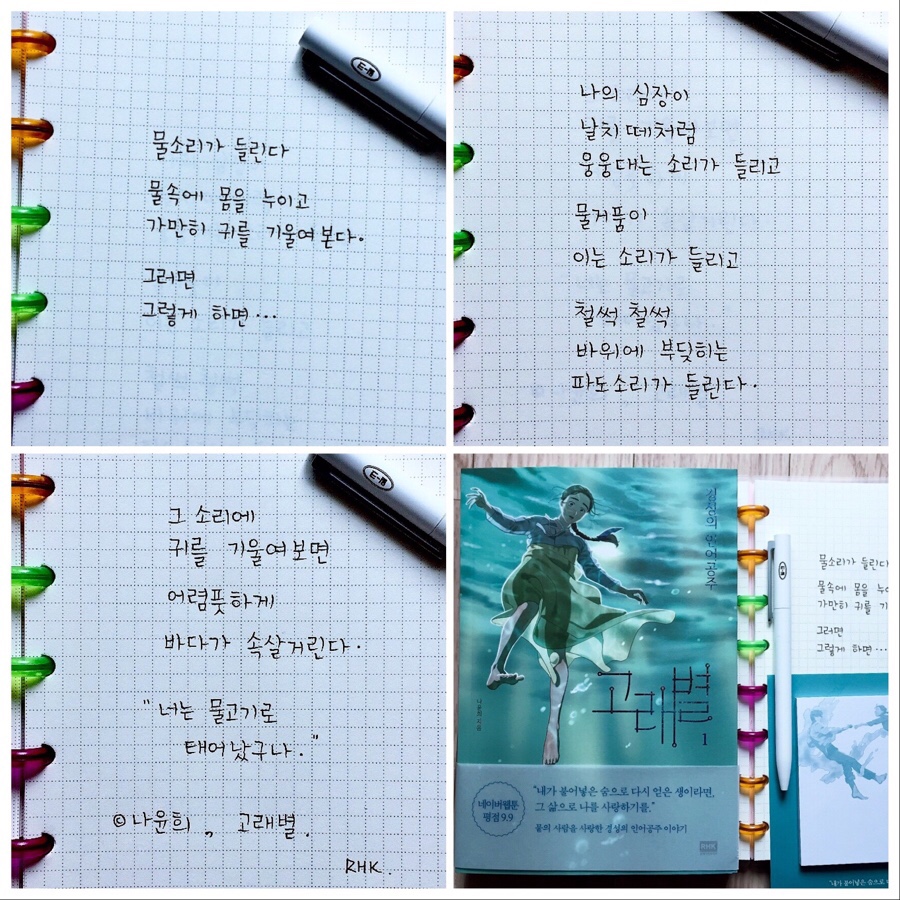 물소리가 들린다
물속에 몸을 누이고
가만히 귀를 기울여 본다.
그러면
그렇게 하면...
나의 심장이
날치 떼처럼
웅웅대는 소리가 들리고
물거품이
이는 소리가 들리고
철썩 철썩
바위에 부딪히는
파도소리가 들린다.
그 소리에
귀를 기울여보면
어렴풋하게
바다가 속살거린다.
"너는 물고기로
태어났구나."
©나윤희 „ 고래별.
RHK.
경성의 인어공주
고래별
1
나윤희
네이버웹툰
평점 9.9
"내가 불어넣은 숨으로 다시 얻은 생이라면,
그 삶으로 나를 사랑하기를."
뭍의 사람을 사랑한 경성의 인어공주 이야기
RHK
물소리가 들린다
물속에 몸을 누
가만히 귀를 기
그러면
그렇게 하면...
"내가 불어넣은 숨으로